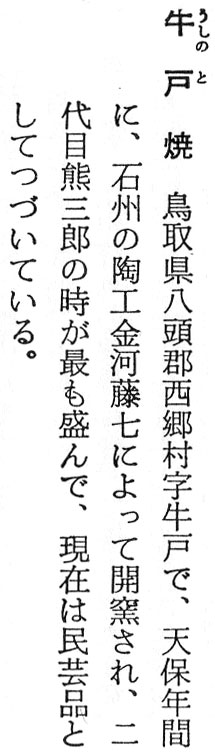 牛戸焼　鳥取県八頭郡西郷村字牛戸で、天保年間
に、石州の陶工金河藤七によって開窯され、二
代目熊三郎の時が最も盛んで、現在は民芸品と
してつづいている。
うしのと